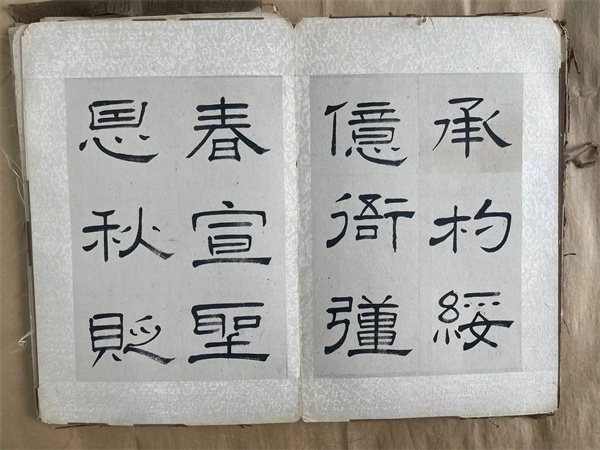 承杓綏
億衙彊
春宣聖
恩秋貶